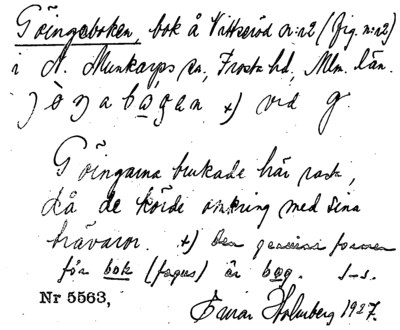 Göingeboken, bok å Vittseröd nr:12 (fig. n:2)
i N. Munkarps sn, Frosta hd, Mlm. län.
jò̀ŋabògen +) vid g
Göingarna brukade här rast,
då de körde omkring med sina
trävaror. +) Den genuina formen
för bok (fagus) är bog. J-s.
Nr 5563, Einar Holmberg 1927.